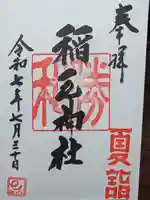 奉拝
稲毛神社
令和七年七月三十日
夏詣